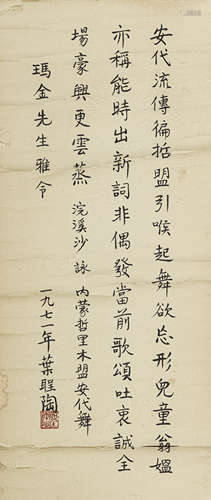 安代流傳徧哲盟引喉起舞欲忘形兒童翁媼
亦稱能時出新詞非偶發當前歌頌吐衷誠全
場豪興更雲蒸 浣溪沙詠 內蒙哲里木盟安代舞
瑪金先生雅令
一九七一年葉聖陶